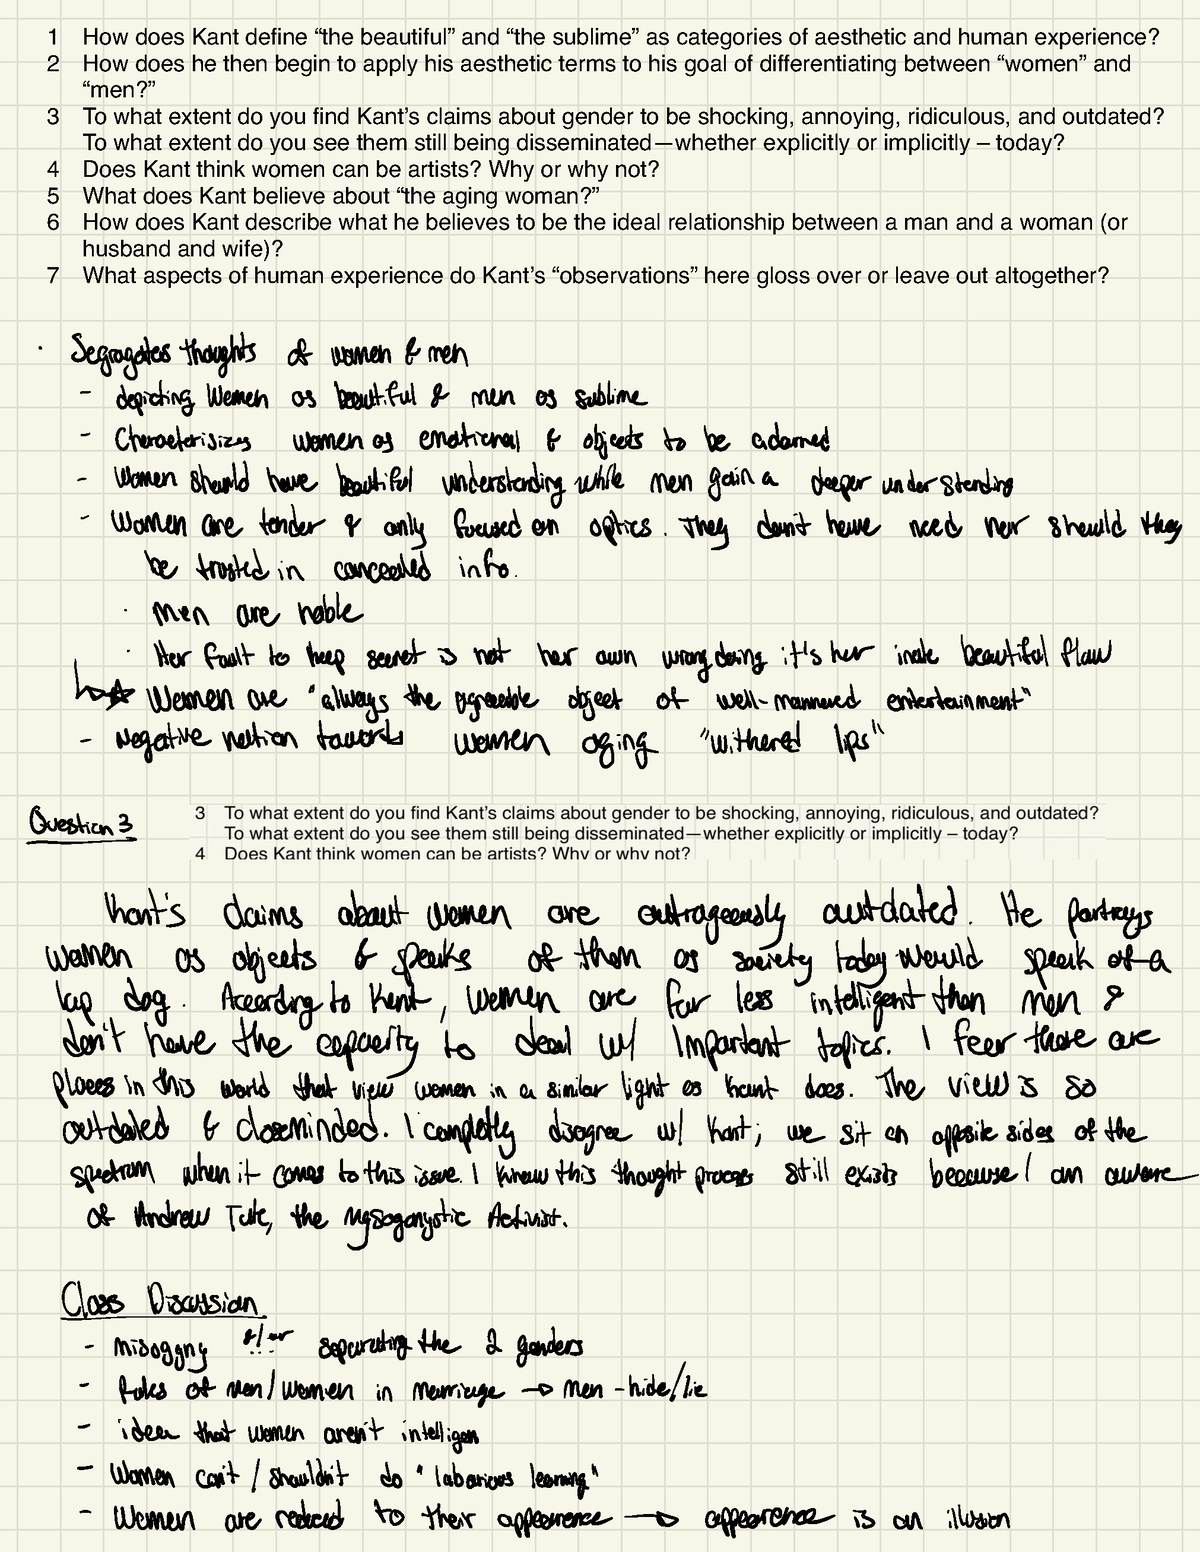 1 How does Kant define “the beautiful” and “the sublime” as categories of aesthetic and human experience?
2 How does he then begin to apply his aesthetic terms to his goal of differentiating between “women” and
“men?”
3 To what extent do you find Kant’s claims about gender to be shocking, annoying, ridiculous, and outdated?
To what extent do you see them still being disseminated—whether explicitly or implicitly – today?
4 Does Kant think women can be artists? Why or why not?
5 What does Kant believe about “the aging woman?”
6 How does Kant describe what he believes to be the ideal relationship between a man and a woman (or
husband and wife)?
7 What aspects of human experience do Kant’s “observations” here gloss over or leave out altogether?
· Segragates thoughts of women & men
- depicting Women as beautiful & men as sublime
- Characterisizes women as emotional & objects to be adorned
- Women should have beautiful understanding while men gain a deeper understanding
- Women are tender & only focused on optics. They don't have need nor should they
be trusted in concealed info.
· Men are noble
· Her fault to keep secret is not her own wrongdoing it's her inate beautiful flaw
Women are "always the agreeable object of well-mannered entertainment"
- Negative notion towards women aging "withered lips"
Question 3
3 To what extent do you find Kant’s claims about gender to be shocking, annoying, ridiculous, and outdated?
To what extent do you see them still being disseminated—whether explicitly or implicitly – today?
4 Does Kant think women can be artists? Why or why not?
Kant's claims about women are outrageously outdated. He portrays
women as objects & speaks of them as society today would speak of a
lap dog. According to Kant, women are far less intelligent than men &
don't have the capacity to deal w/ important topics. I feer there are
places in this world that view women in a similar light as Kant does. The view is so
outdated & closeminded. I completly disagree w/ Kant; we sit on opposite sides of the
spectrum when it comes to this issue. I know this thought process still exists because I am aware
of Andrew Tate, the Mysogonystic Activist.
Class Discussion
- misoggny &/or separating the 2 genders
- Roles of Men/Women in marriage → men - hide/lie
- idea that women aren't intelligen
- Women can't / shouldn't do "laborious learning"
- Women are reduced to their appearence → appearence is an illusion